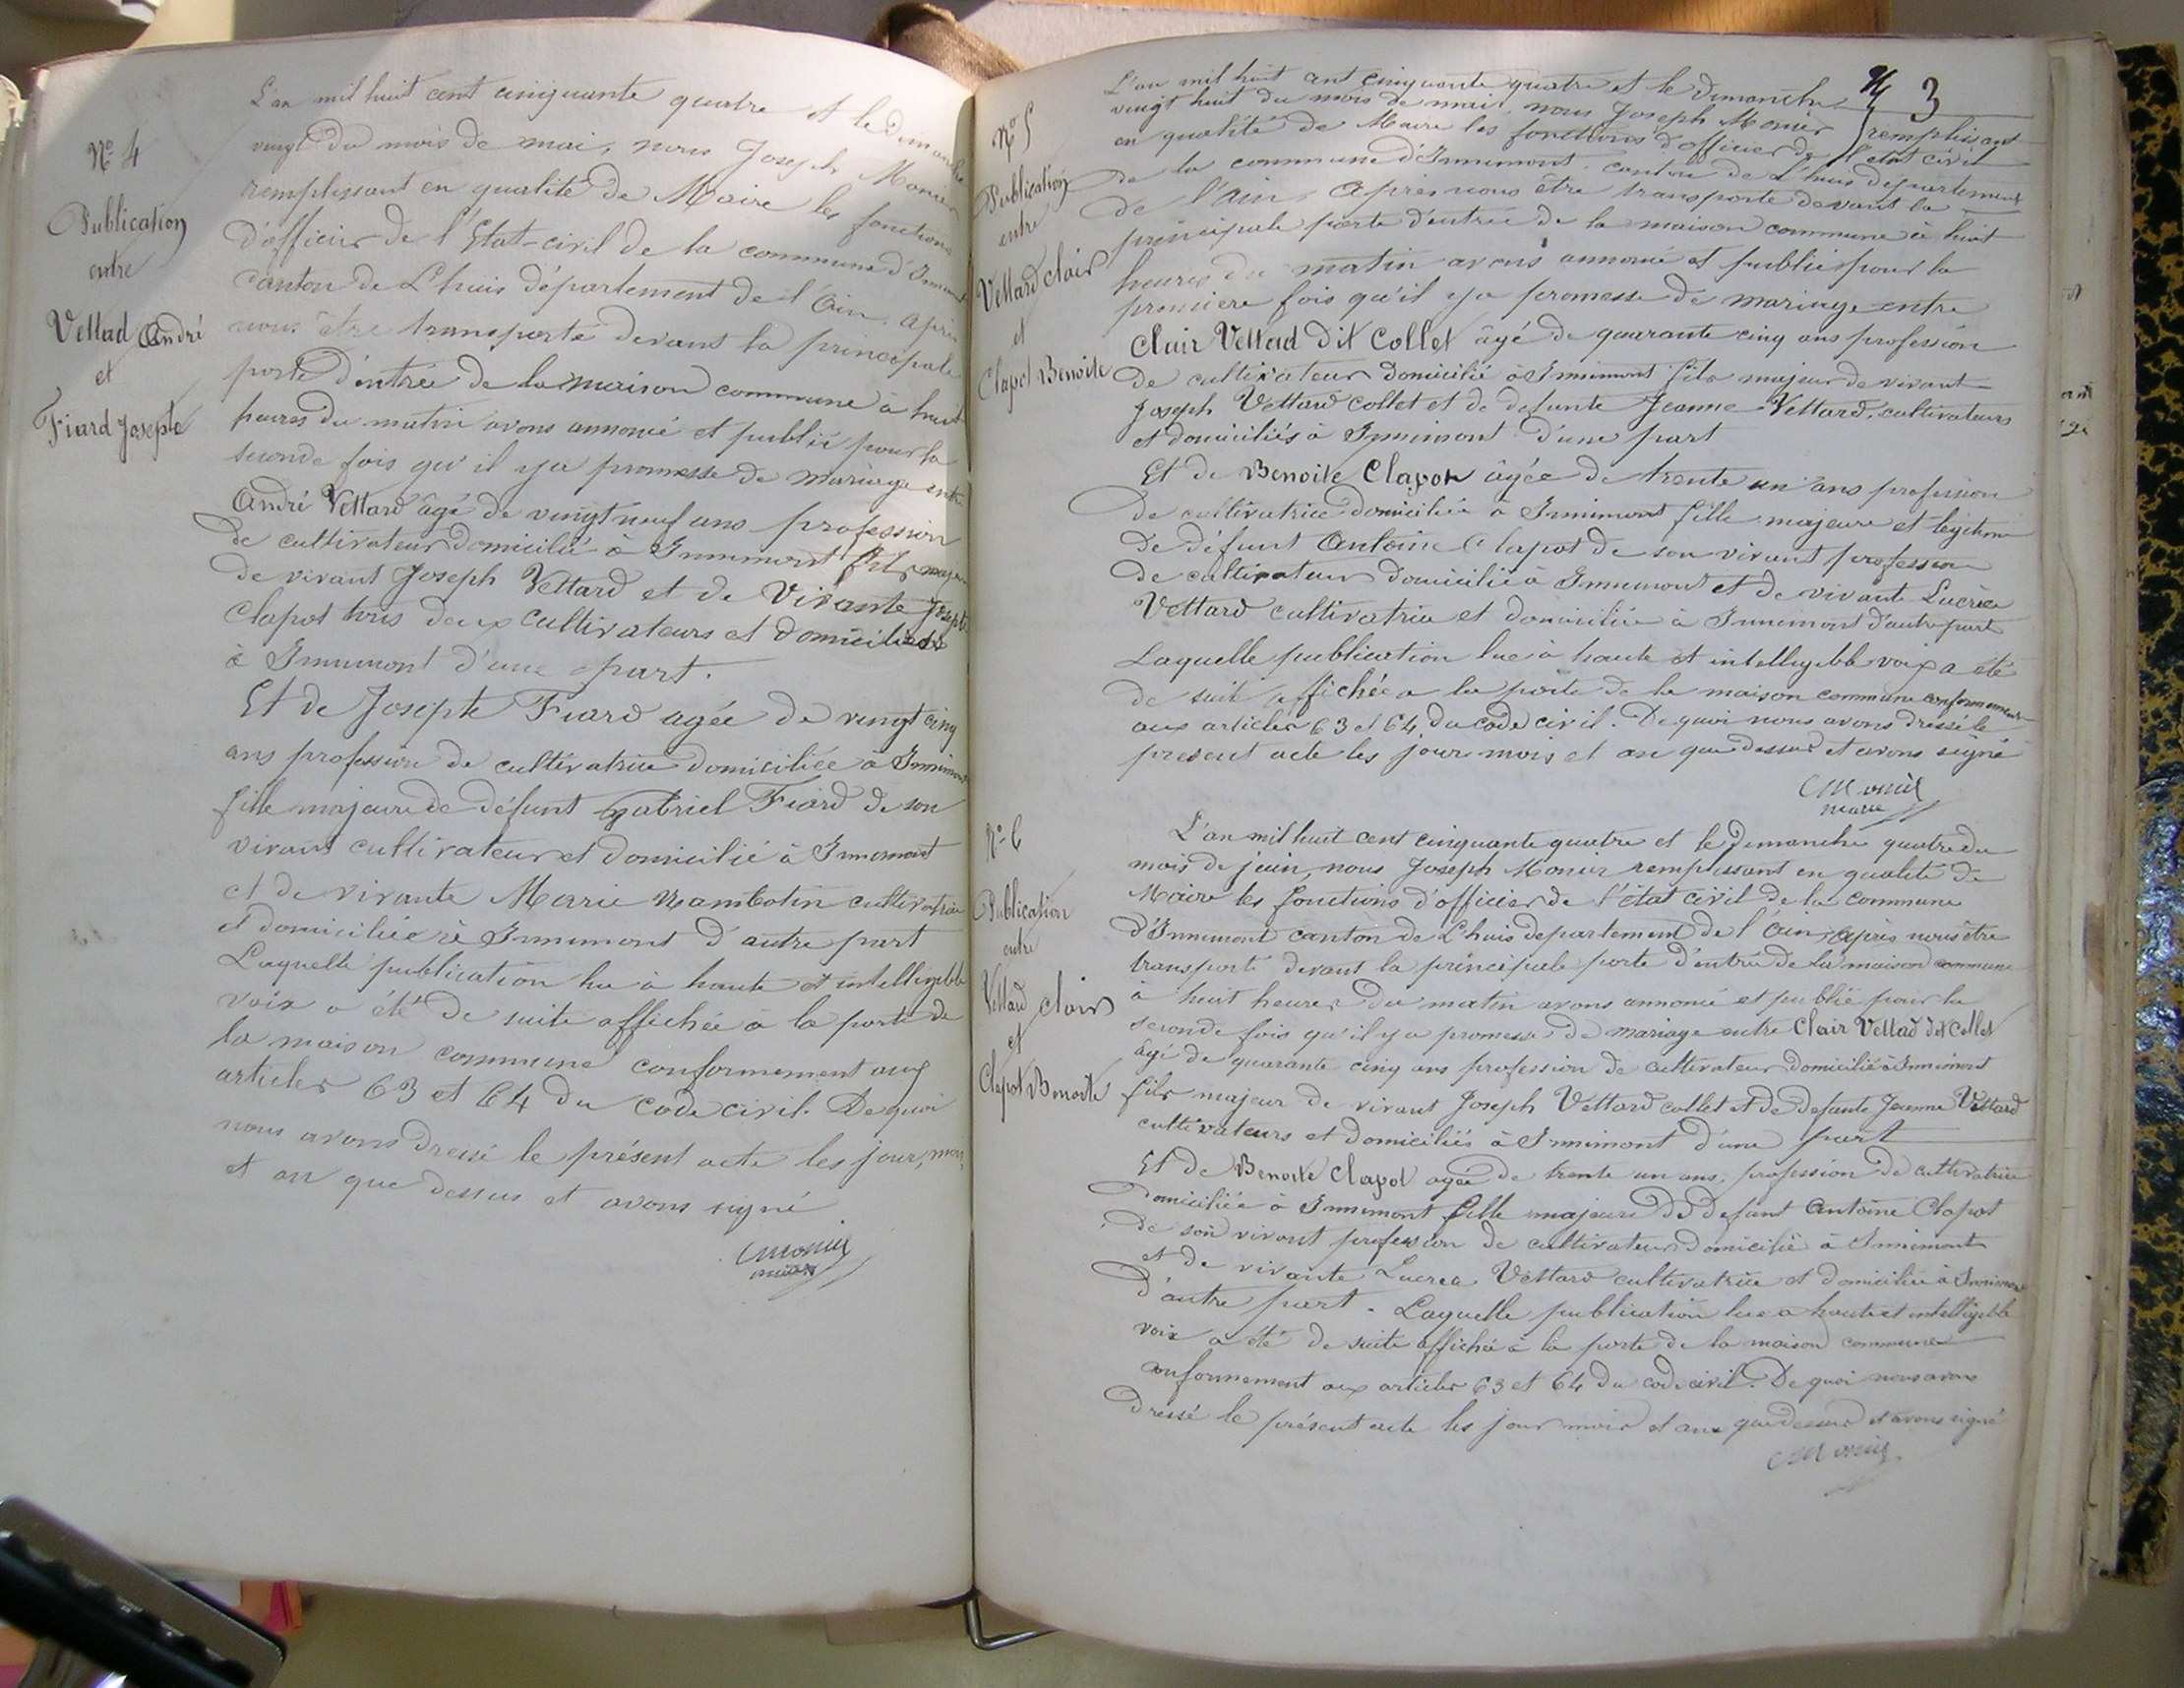 N° 4
Publication
entre
Vettad André
et
Fiard Josepte
L'an mil huit cent cinquante quatre et le dimanche
vingt du mois de mai, nous Joseph Monier
remplissant en qualité de Maire les fonctions
d'officier de l'Etat-civil de la commune d'Innimont
canton de L'huis département de l'Ain. après
nous être transporté devant la principale
porte d'entrée de la maison commune à huit
heures du matin avons annoncé et publié pour la
seconde fois qu'il y a promesse de mariage entre
André Vettard âgé de vingt neuf ans profession
de cultivateur domicilié à Innimont fils majeur
de vivant Joseph Vettard et de vivante Josepte
Clapot tous deux cultivateurs et domiciliés
à Innimont d'une part.
Et de Josepte Fiard agée de vingt cinq
ans profession de cultivatrice domiciliée à Innimont
fille majeure de défunt Gabriel Fiard de son
vivant cultivateur et domicilié à Innimont
et de vivante Marie Nambotin cultivatrice
et domiciliée à Innimont d'autre part
Laquelle publication lue à haute et intelligible
voix a été de suite affichée à la porte de
la maison commune conformement aux
articles 63 et 64 du code civil. De quoi
nous avons dressé le présent acte les jour, mois,
et an que dessus et avons signé
Monier
maire
3
N° 5
Publication
entre
Vettard Clair
et
Clapot Benoite
L'an mil huit cent cinquante quatre et le Dimanche
vingt huit du mois de mai, nous Joseph Monier remplissant
en qualité de Maire les fonctions d'officier de l'état civil
de la commune d'Innimont canton de L'huis département
de l'Ain, Après nous être transporté devant la
principale porte d'entrée de la maison commune à huit
heures du matin avons annoncé et publié pour la
première fois qu'il y a promesse de mariage entre
Clair Vettad dit Collet âgé de quarante cinq ans profession
de cultivateur domicilié à Innimont fils majeur de vivant
Joseph Vettard collet et de defunte Jeanne Vettard, cultivateurs
et domiciliés à Innimont d'une part
Et de Benoite Clapot âgée de trente un ans profession
de cultivatrice domiciliée à Innimont fille majeure et légitime
De défunt Antoine Clapot de son vivant profession
de cultivateur domicilié à Innimont et de vivante Lucrèce
Vettard cultivatrice et domiciliée à Innimont d'autre part
Laquelle publication lue à haute et intelligible voix a été
de suite affichée a la porte de la maison commune conformement
aux articles 63 et 64 du code civil. De quoi nous avons dressé le
présent acte les jour mois et an que dessus et avons signé
Monier
maire
N° 6
Publication
entre
Vettard Clair
et
Clapot Benoite
L'an mil huit cent cinquante quatre et le Dimanche quatre du
mois de juin, nous Joseph Monier remplissant en qualité de
Maire les fonctions d'officier de l'état civil de la commune
d'Innimont canton de L'huis departement de l'Ain, après nous être
transporté devant la principale porte d'entrée de la maison commune
à huit heures du matin avons annoncé et publié pour la
seconde fois qu'il y a promesse de mariage entre Clair Vettad dit Collet
âgé de quarante cinq ans profession de cultivateur domicilié à Innimont
fils majeur de vivant Joseph Vettard collet et de defunte Jeanne Vettard
cultivateurs et domiciliés à Innimont d'une part
Et de Benoite Clapot agée de trente un ans, profession de cultivatrice
domiciliée à Innimont fille majeure de defunt Antoine Clapot
de son vivant profession de cultivateur domicilié à Innimont
et de vivante Lucrea Vettard cultivatrice et domiciliée à Innimont
d'autre part. Laquelle publication lue a haute et intelligible
voix a été de suite affichée à la porte de la maison commune
conformement aux articles 63 et 64 du code civil. De quoi nous avons
dressé le présent acte les jour mois et an que dessus et avons signé
Monier